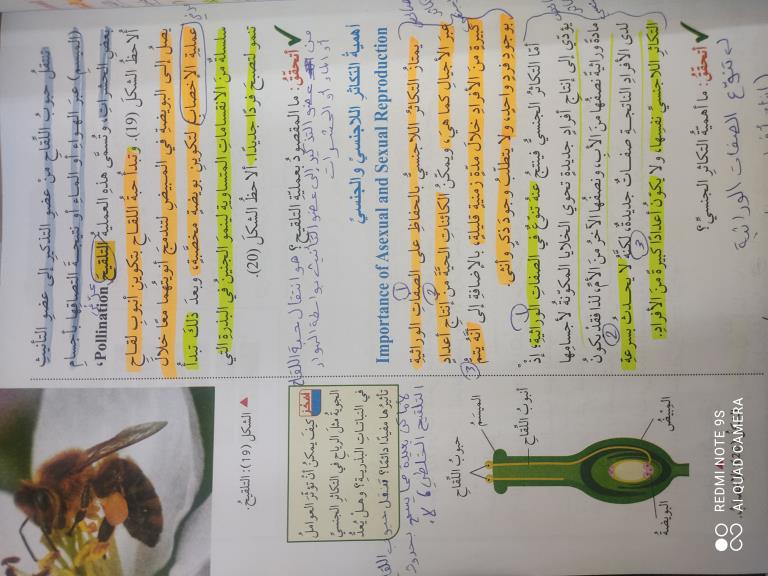 تنتقلُ حبوبُ اللقاحِ من عضوِ التذكيرِ إلى عضوِ التأنيثِ
(الميسمِ) عبرَ الهواءِ أو الماءِ أو نتيجةَ التصاقِها بأجسامِ
بعضِ الحشراتِ، وتُسمّى هذه العمليةُ التلقيحَ
Pollination، ألاحظُ الشكلَ (19). وتبدأُ حبةُ اللقاحِ بتكوينِ أنبوبِ لقاحٍ
يصلُ إلى البويضةِ في المبيضِ لتندمجَ أنويتُهما معًا خلالَ
عمليةِ الإخصابِ لتكوينِ بويضةٍ مخصَّبةٍ، وبعدَ ذلكَ تبدأُ
سلسلةٌ منَ الانقساماتِ المتساويةِ لينموَ الجنينُ في البذرةِ التي
تنمو لتصبحَ فردًا جديدًا. ألاحظُ الشكلَ (20).
✔ أتحقّقُ: ما المقصودُ بعمليةِ التلقيحِ؟
هو انتقال حبة اللقاح
من عضو التذكير إلى عضو التأنيث بواسطة الهواء
أو الماء أو الحشرات
أهميةُ التكاثرِ اللاجنسيِّ والجنسيِّ
Importance of Asexual and Sexual Reproduction
يمتازُ التكاثرُ اللاجنسيُّ بالحفاظِ على الصفاتِ الوراثيةِ
عبرَ الأجيالِ كما هيَ، ويمكّنُ الكائناتِ الحيّةَ من إنتاجِ أعدادٍ
كبيرةٍ من الأفرادِ خلالَ مدةٍ زمنيةٍ قليلةٍ، بالإضافةِ إلى أنّه يتمُّ
بوجودِ فردٍ واحدٍ، ولا يتطلّبُ وجودَ ذكرٍ وأنثى.
أمّا التكاثرُ الجنسيُّ فينتجُ عنهُ تنوّعٌ في الصفاتِ الوراثيةِ؛ إذْ
يؤدّي إلى إنتاجِ أفرادٍ جديدةٍ تحوي الخلايا المكوّنةُ لأجسامِها
مادةً وراثيةً نصفُها منَ الأبِ ونصفُها الآخرُ منَ الأمِّ، لذا فقدْ تكونُ
لدى الأفرادِ الناتجةِ صفاتٌ جديدةٌ، لكنّهُ لا يحدثُ بسرعةِ
التكاثرِ اللاجنسيِّ نفسِها، ولا يكوّنُ أعدادًا كبيرةً منَ الأفرادِ.
✔ أتحقّقُ: ما أهميّةُ التكاثرِ الجنسيِّ؟
تنوّع الصفات الوراثية
▲ الشكلُ (19): التلقيحُ.
أفكّرُ كيفَ يمكنُ أنْ تؤثّرَ العواملُ
الجويةُ مثلُ الرياحِ في التكاثرِ الجنسيِّ
في النباتاتِ البذريةِ؟ وهلْ يُعدُّ
تأثيرُها مفيدًا دائمًا؟
تنقل حبوب
التلقيح الخلطي
حبوبُ اللقاحِ
الميسمُ
أنبوبُ اللقاحِ
المبيضُ
البويضةُ
REDMI NOTE 9S
AI QUAD CAMERA